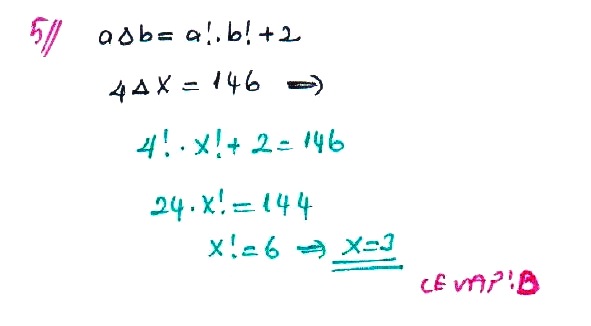 5// a△b = a!.b! + 2
4△x = 146 ⇒
4! · x! + 2 = 146
24 · x! = 144
x! = 6 ⇒ x = 3
CEVAP: B